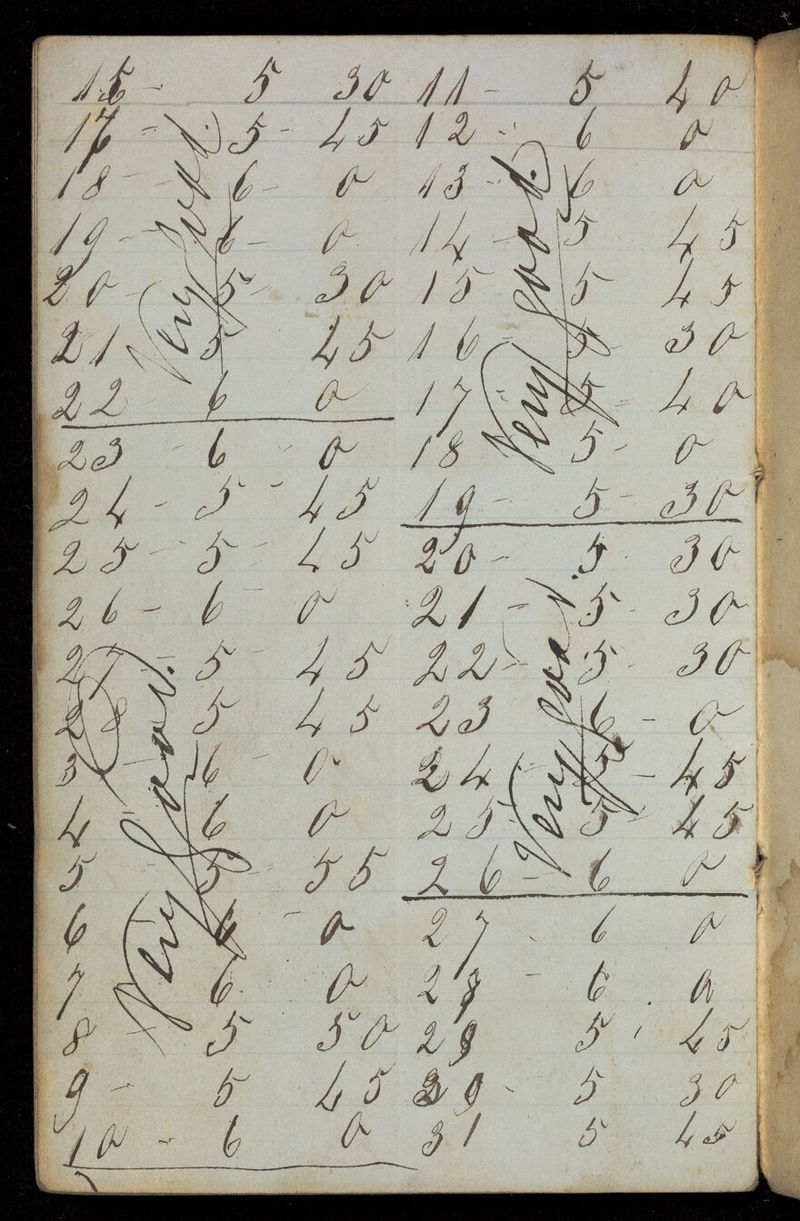 15 - 5 30
16 - 5 - 45
18 - 6 - 0
19 - 6 - 0
20 - 5 - 30
21 5 45
22 6 0
Very Good.
23 - 6 - 0
24 - 5 - 45
25 - 5 - 45
26 - 6 - 0
27 - 5 - 45
28 5 45
3 - 6 - 0
4 - 6 0
5 - 5 - 55
6 6 - 0
7 6 0
8 5 50
9 - 5 45
10 - 6 0
Very Good.
11 - 5 40
12 - 6 0
13 - 6 0
14 - 5 45
15 5 45
16 - 5 30
17 - 5 - 40
18 5 - 0
19 - 5 - 30
Very Good.
20 - 5 30
21 - 5 - 30
22 - 5 - 30
23 6 - 0
24 - 5 - 45
25 - 5 - 45
26 - 6 0
Very Good.
27 - 6 0
28 - 6 0
29 5 45
30 - 5 30
31 5 45